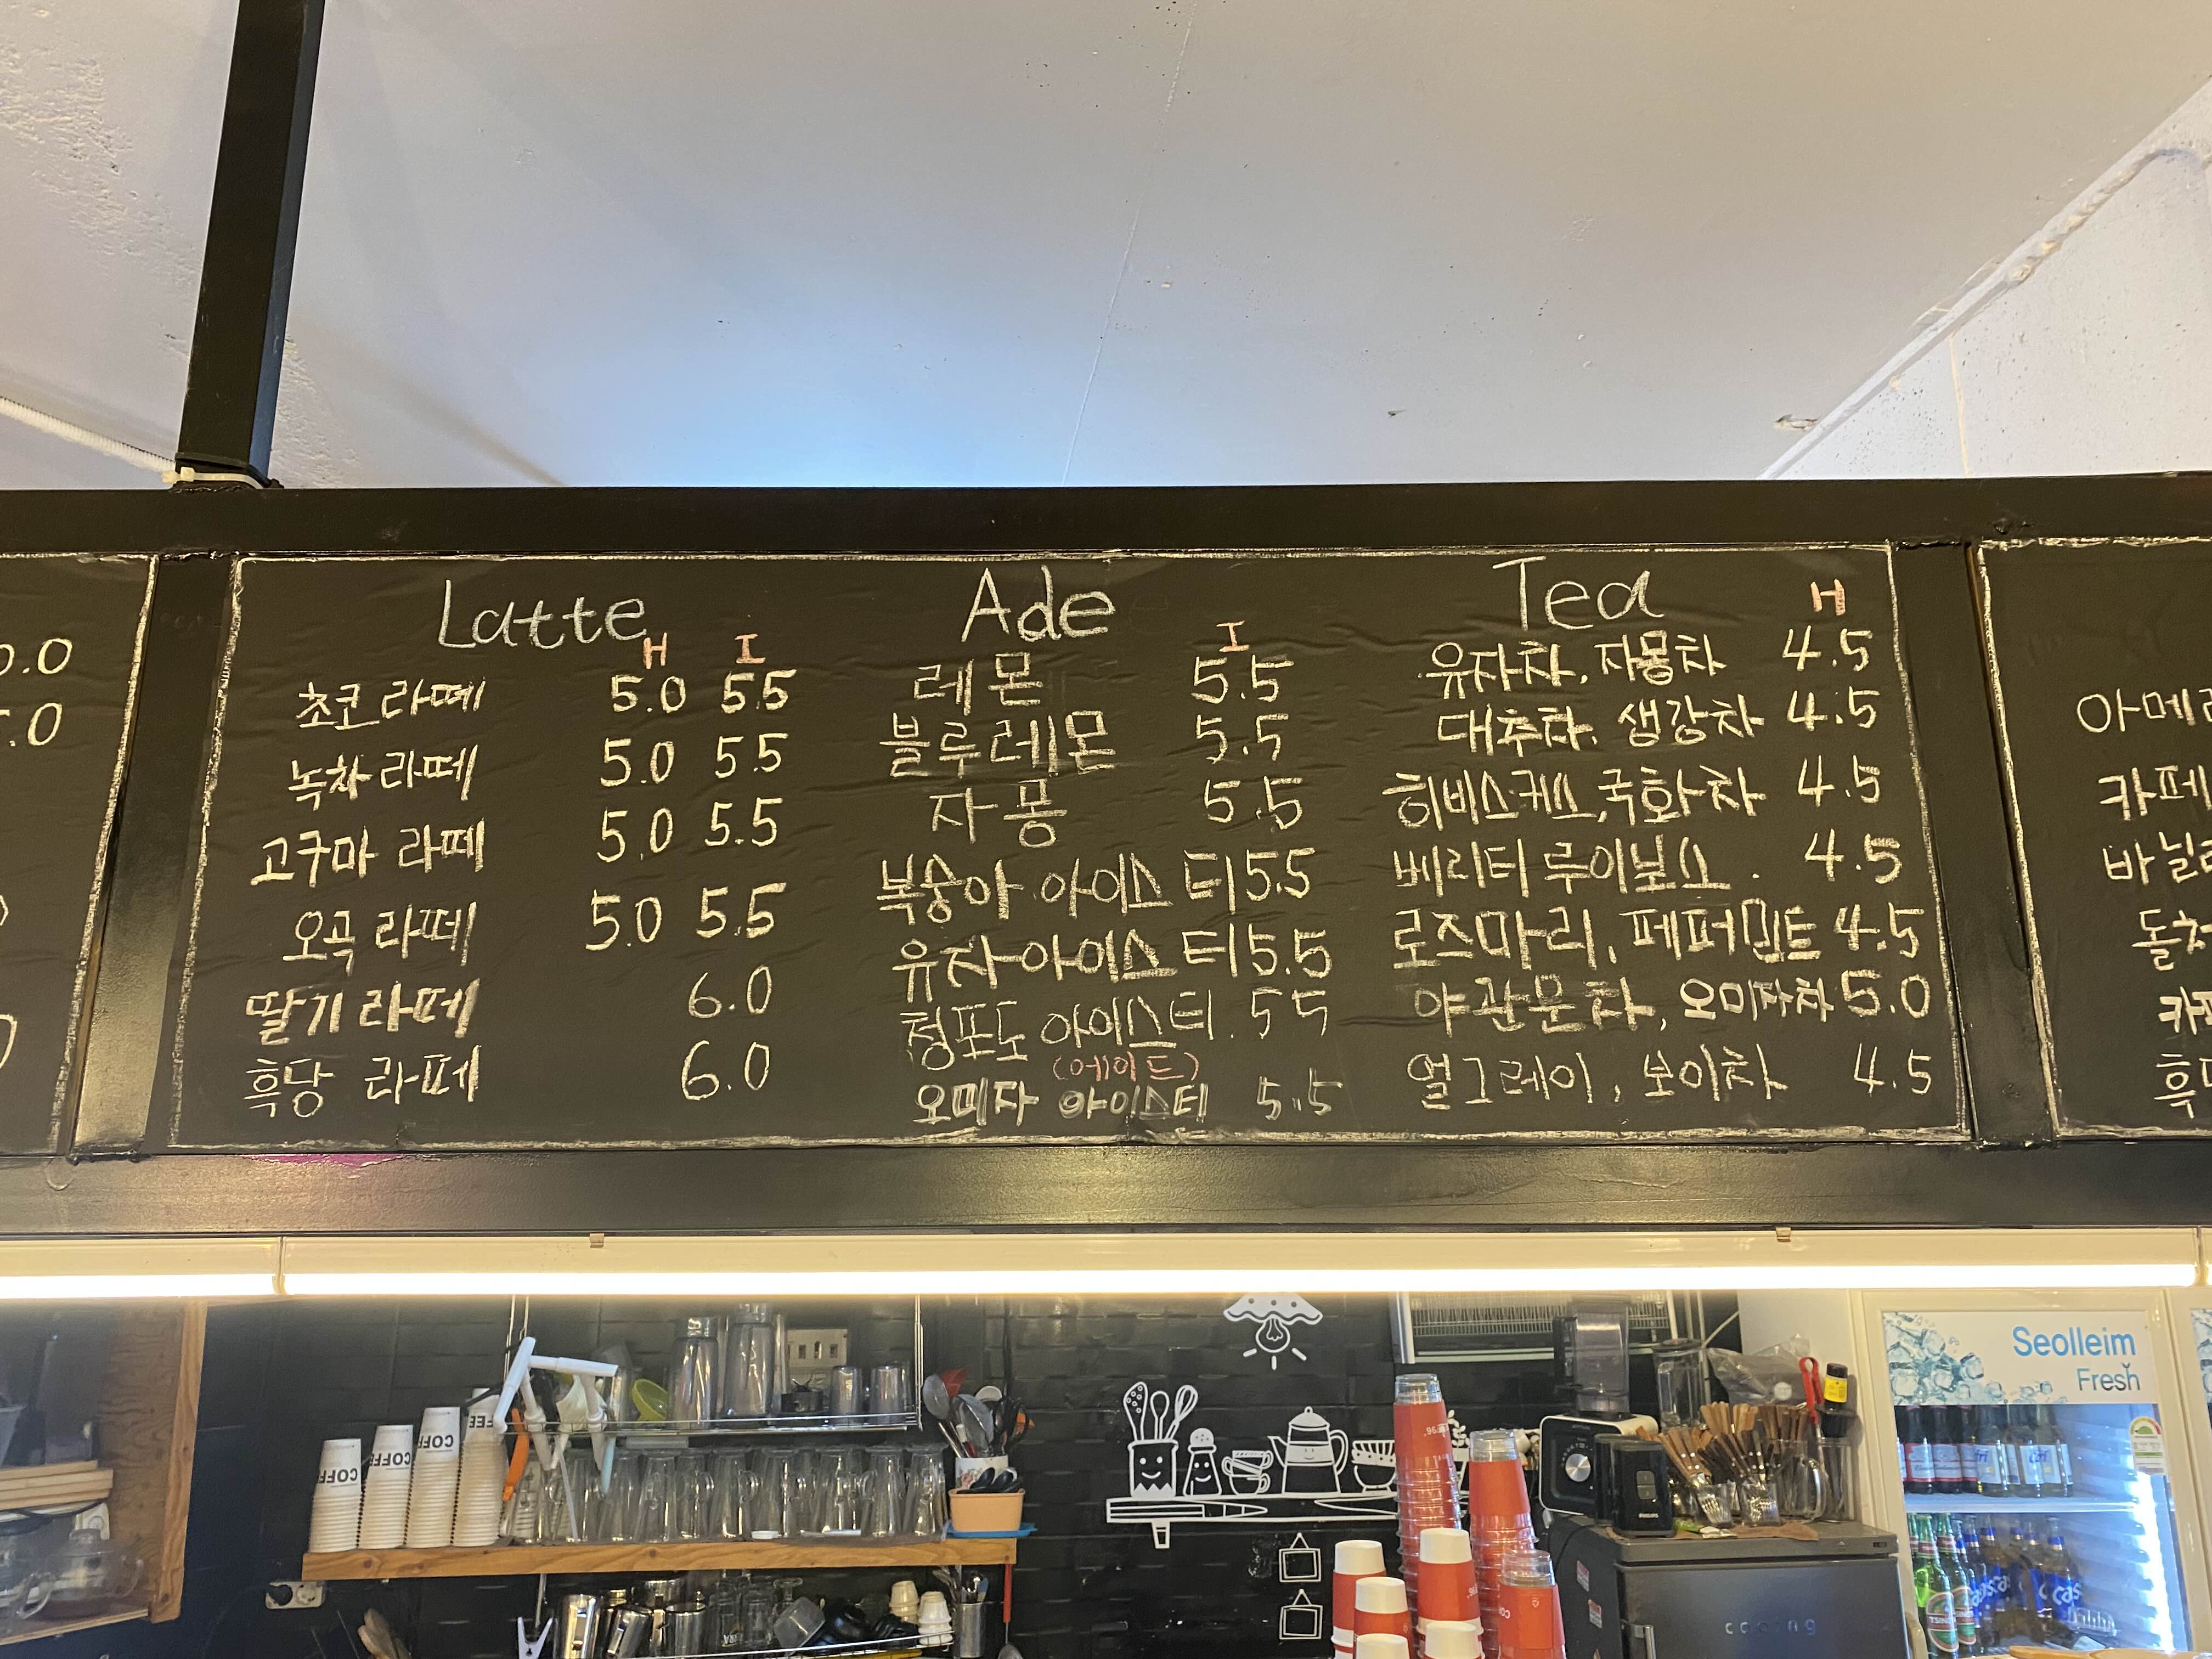 Latte
H I
초코라떼 5.0 5.5
녹차라떼 5.0 5.5
고구마 라떼 5.0 5.5
오곡 라떼 5.0 5.5
딸기라떼 6.0
흑당 라떼 6.0
Ade
I
레몬 5.5
블루레몬 5.5
자몽 5.5
복숭아 아이스티 5.5
유자아이스티 5.5
청포도 아이스티. 5 5
(에이드)
오미자 아이스티 5.5
Tea
H
유자차, 자몽차 4.5
대추차. 생강차 4.5
히비스커스,국화차 4.5
베리티 루이보스. 4.5
로즈마리, 페퍼민트 4.5
야관문차, 오미자차 5.0
얼그레이, 보이차 4.5
아메리
카페
바닐라
Seolleim
Fresh